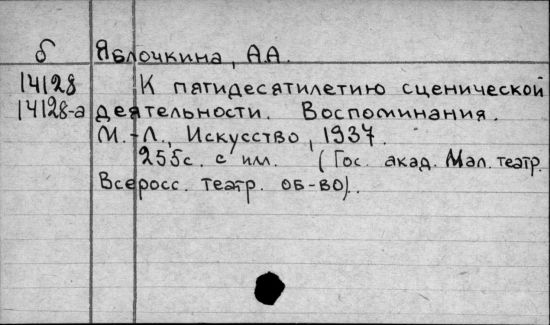 б Яблочкина, А.А.
14128 К пятидесятилетию сценической
14128-а деятельности. Воспоминания.
М.-Л., Искусство, 1937.
255с. с илл. (Гос. акад. Мал. театр.
Всеросс. театр. об-во).